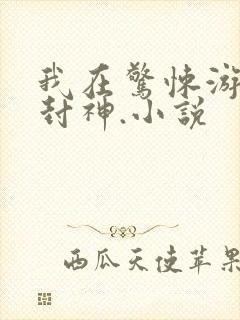 我在驚悚游
封神.小説
西瓜天使苹果